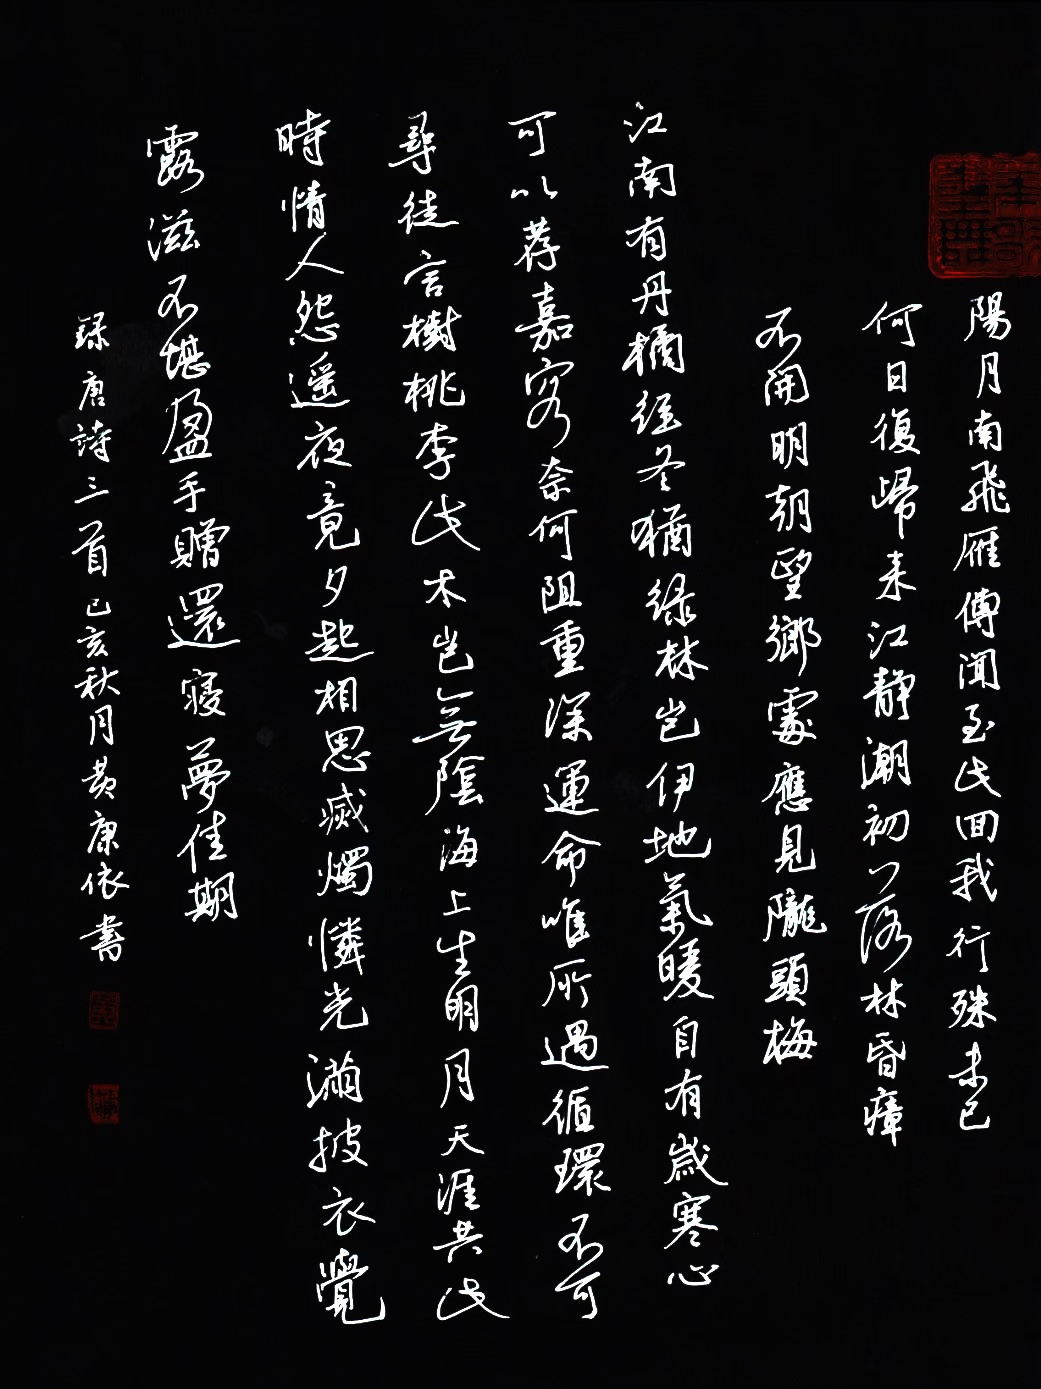 陽月南飛雁傳聞至此回我行殊未已
何日復歸來江靜潮初落林昏瘴
不開明朝望鄉處應見隴頭梅
江南有丹橘經冬猶綠林豈伊地氣暖自有歲寒心
可以荐嘉客奈何阻重深運命唯所遇循環不可
尋徒言樹桃李此木豈無陰海上生明月天涯共此
時情人怨遥夜竟夕起相思滅燭憐光滿披衣覺
露滋不堪盈手贈還寢夢佳期
録唐詩三首己亥秋月黄康依書